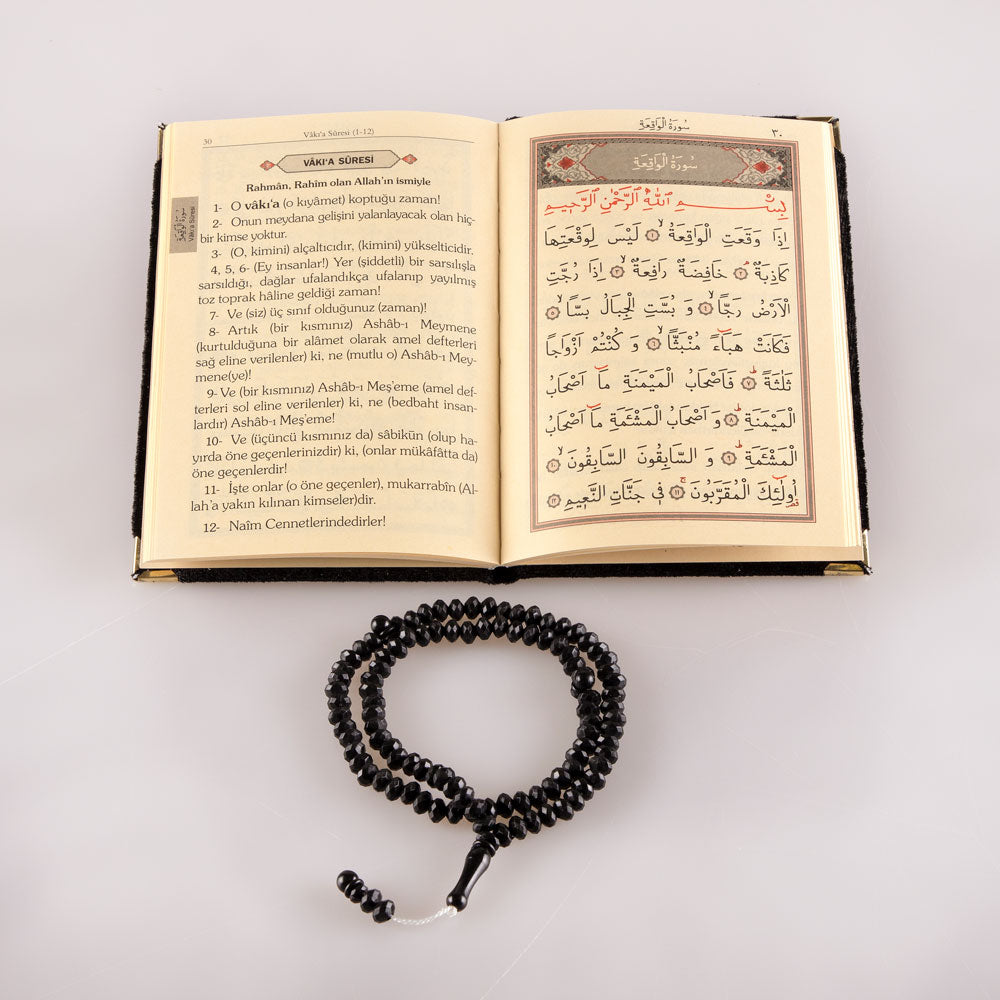 30
Vâkı'a Sûresi (1-12)
VÂKI'A SÛRESİ
Rahmân, Rahîm olan Allah'ın ismiyle
1- O vâkı'a (o kıyâmet) koptuğu zaman!
2- Onun meydana gelişini yalanlayacak olan hiç-
bir kimse yoktur.
3- (O, kimini) alçaltıcıdır, (kimini) yükselticidir.
4, 5, 6- (Ey insanlar!) Yer (şiddetli) bir sarsılışla
sarsıldığı, dağlar ufalandıkça ufalanıp yayılmış
toz toprak hâline geldiği zaman!
7- Ve (siz) üç sınıf olduğunuz (zaman)!
8- Artık (bir kısmınız) Ashâb-ı Meymene
(kurtulduğuna bir alâmet olarak amel defterleri
sağ eline verilenler) ki, ne (mutlu o) Ashâb-ı Mey-
mene(ye)!
9- Ve (bir kısmınız) Ashâb-ı Meş'eme (amel def-
terleri sol eline verilenler) ki, ne (bedbaht insan-
lardır) Ashâb-ı Meş'eme!
10- Ve (üçüncü kısmınız da) sâbikün (olup ha-
yırda öne geçenlerinizdir) ki, (onlar mükâfâtta da)
öne geçenlerdir!
11- İşte onlar (o öne geçenler), mukarrabîn (Al-
lah'a yakın kılınan kimseler)dir.
12- Naîm Cennetlerindedirler!
سورة الواقعة
Vâkı'a Sûresi
سُورَةُ الْوَاقِعَةِ
٣٠
سُورَةُ الْوَاقِعَةِ
بِسْمِ اللّٰهِ الرَّحْمٰنِ الرَّحِيمِ
اِذَا وَقَعَتِ الْوَاقِعَةُ ۙ ﴿١﴾ لَيْسَ لِوَقْعَتِهَا
كَاذِبَةٌ ۘ ﴿٢﴾ خَافِضَةٌ رَافِعَةٌ ﴿٣﴾ اِذَا رُجَّتِ
الْاَرْضُ رَجًّا ۙ ﴿٤﴾ وَ بُسَّتِ الْجِبَالُ بَسًّا ۙ ﴿٥﴾
فَكَانَتْ هَبَاءً مُنْبَثًّا ۙ ﴿٦﴾ وَ كُنْتُمْ اَزْوَاجًا
ثَلٰثَةً ۜ ﴿٧﴾ فَاَصْحَابُ الْمَيْمَنَةِ مَا اَصْحَابُ
الْمَيْمَنَةِ ۜ ﴿٨﴾ وَ اَصْحَابُ الْمَشْئَمَةِ مَا اَصْحَابُ
الْمَشْئَمَةِ ۜ ﴿٩﴾ وَ السَّابِقُونَ السَّابِقُونَ ۙ ﴿١٠﴾
اُولٰئِكَ الْمُقَرَّبُونَ ۚ ﴿١١﴾ فِى جَنَّاتِ النَّعِيمِ ﴿١٢﴾